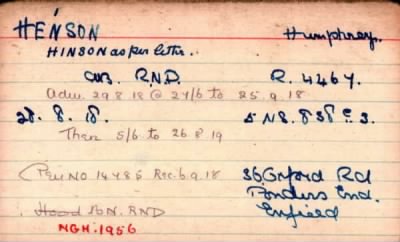 HENSON Humphrey.
HINSON as per letter.
AB. R.N.D. R. 4467.
Adm. 29 8 18 @ 27/6 to 25.9.18
28. 8. 18.
Then 5/6 to 26 8 19
Pen NO 14785 Rec. 6.9.18 36 Orford Rd
Ponders End.
Enfield
Hood BN. RND
NGH. 1956